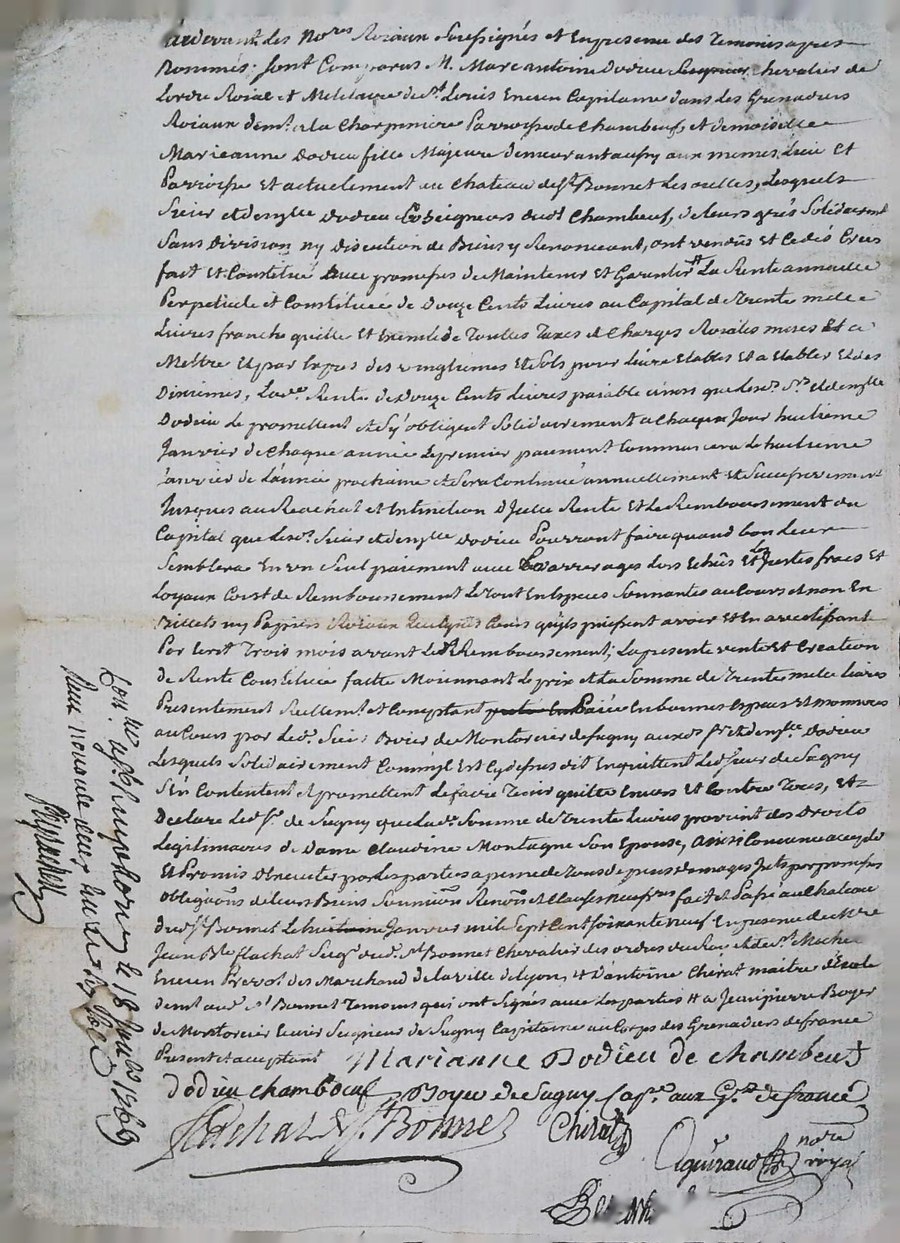 Pardevant les no.res Roiaux soussignés et En presence des temoins apres
Nommés; sont Comparus M. Marc antoine Dodieu Seigneur Chevalier de
Lordre Roial et Militaire de St. Louis Encien Capitaine dans les Grenadiers
Roiaux dem.t a la Charpeniere Parroisse de Chambeuf, et demoiselle
Marieanne Dodieu fille Majeure demeurant aussy aux memes Lieu et
Parroisse et actuelement au Chateau de St. Bonnet Les oulles, Lesquels
Sieur et demlle Dodieu Coseigneurs dudt Chambeuf, de leurs grés Solidairement
Sans division ny discution de Biens y Renonceant, ont vendus et Cedés Créés
fait et Constitué avec promesses de Maintenir et Garentir La Rente annuelle
Perpetuele et Constituée de Douze Cents Livres au Capital de Trente mille
Livres franche quitte et Exempte de Toutes Taxes et Charges Roialles mises et a
Mettre et par Expres des vingtiemes et Sols pour livre Etablis et a Etablir et des
Dixiemes, Lad.e Rente de Douze Cents Livres paiable ainsi que lesd. Srs et demlle
Dodieu le promettent et S'y obligent Solidairement a Chaque Jour huitieme
Janvier de Chaque année le premier paiement Commencera le huitieme
Janvier de L'année prochaine et Sera Continué annuellement et Successivement
Jusques au Reachat et Extinction d'Icelle Rente et le Remboursement du
Capital que lesd. Sieur et demlle Dodieu Pourront faire quand bon leur
Semblera En un Seul paiement avec les arrerages lors Echus et les Justes frais et
Loyaux Cout de Remboursement Le Tout En Especes Sonnantes au Cours et non En
Billets ny Papiers Roiaux quelques Cours qu'ils puissent avoir et En avertissant
Par Ecrit Trois mois avant led. Remboursement; La presente vente et Creation
de Rente Constituée faitte Moiennant Le prix et la Somme de Trente mille Livres
Presentement Reellemt. et Comptant Paiée En bonnes Especes et monnoies
au Cours par Led. Sieur Boier de Montorcier de Sugny auxd. Sr et demlle Dodieu
Lesquels Solidairement Comme Est Cy dessus dit En quittent Led Sieur de Sugny
S'en Contentent et promettent Le faire Tenir quitte Envers et Contre Tous, Et
Declare Led Sr. de Sugny que Lad. Somme de Trente Livres provient des Droits
Legitimaires de Dame Claudine Montagne Son Epouse, ainsi Convenu accepté
Et Promis d'Executer par les parties a peine de Tous depens Domages Jnts par promesses
obligaons de leurs Biens Soumions Renons et Clauses fait et Passé au Chateau
dud St. Bonnet Le huitieme Janvier mil Sept Cent Soixante neuf En presence de Mre
Jean Bte flachat Seigr dud. St. Bonnet Chevalier des ordres du Roy et de St. Michel
Encien Prevot des Marchand de la ville de Lyon, et d'antoine Chirat maitre d'Ecole
demt aud. St. Bonnet Temoins qui ont Signés avec Les parties et a Jean pierre Boyer
de Montorcier Ecuier Seigneur de Sugny Capitaine au Corps des Grenadiers de france
Present et acceptant Marianne Dodieu de Chambeuf
Dodieu chambœuf Boyer de Sugny Cap.e aux G.rs de france
flachat de St. Bonnet Chirat
Aguiraud no.re royal
Con.lé a St. Simphorien le 18 Janv.er 1769